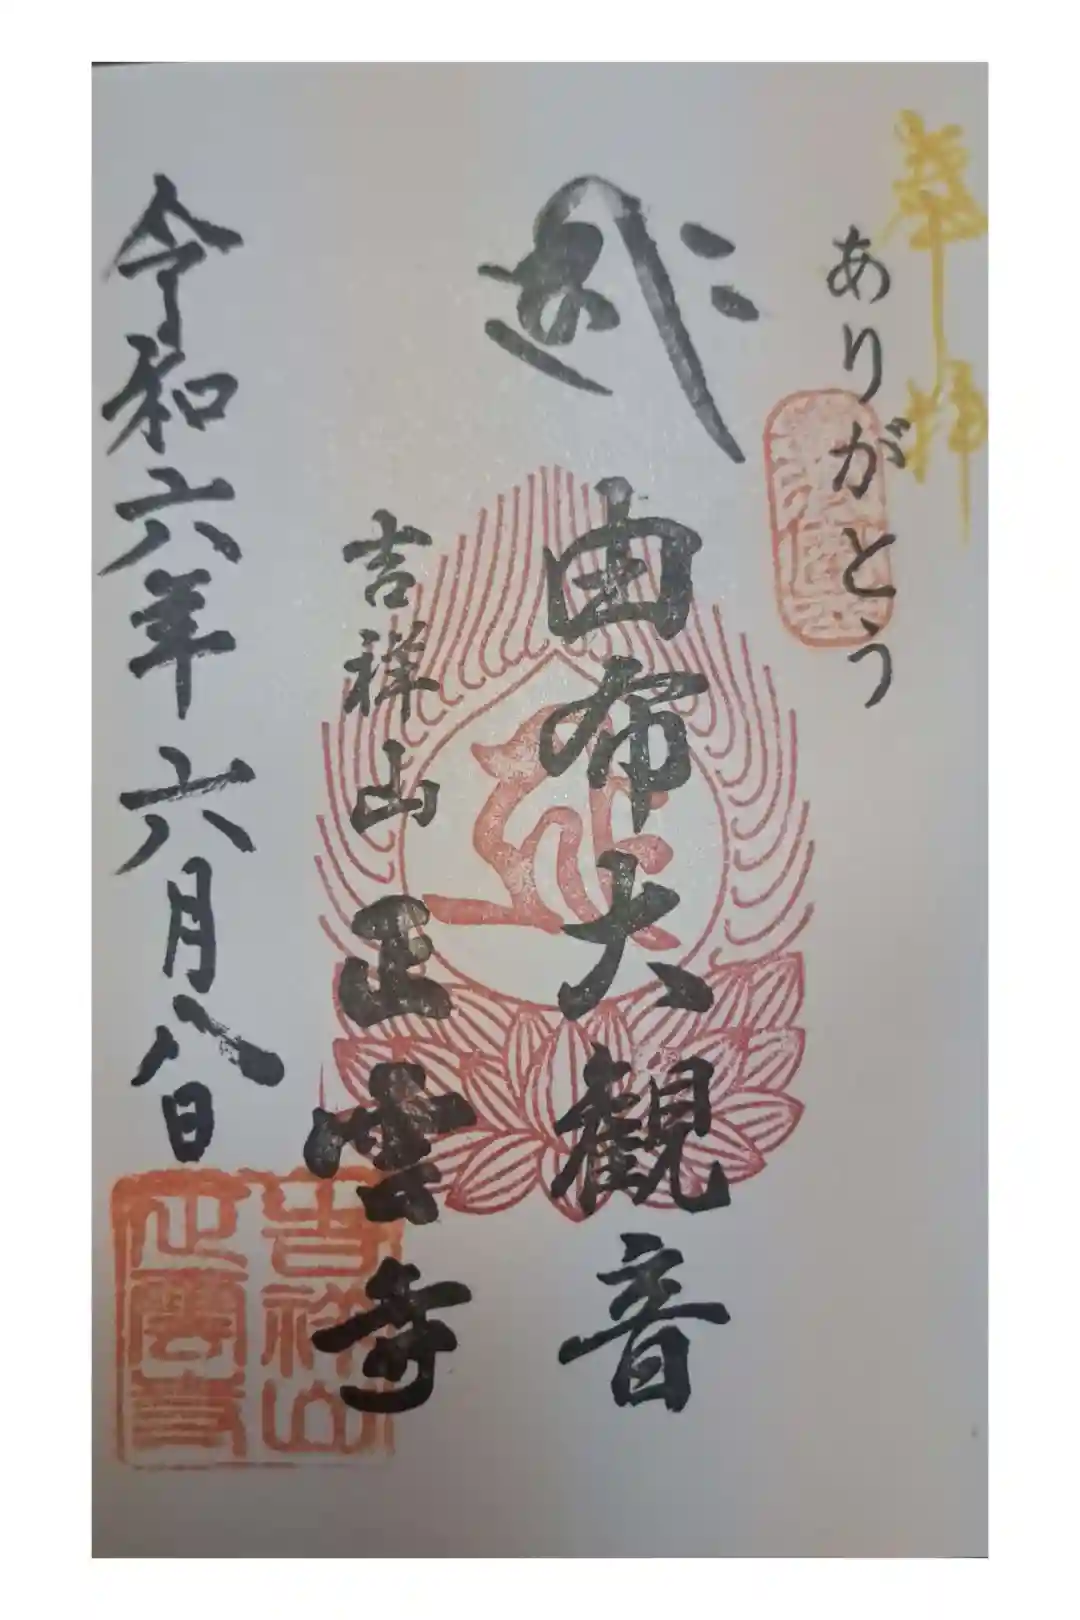 奉拝
ありがとう
由布大観音
吉祥山 正雲寺
令和六年六月八日
吉祥山
正雲寺